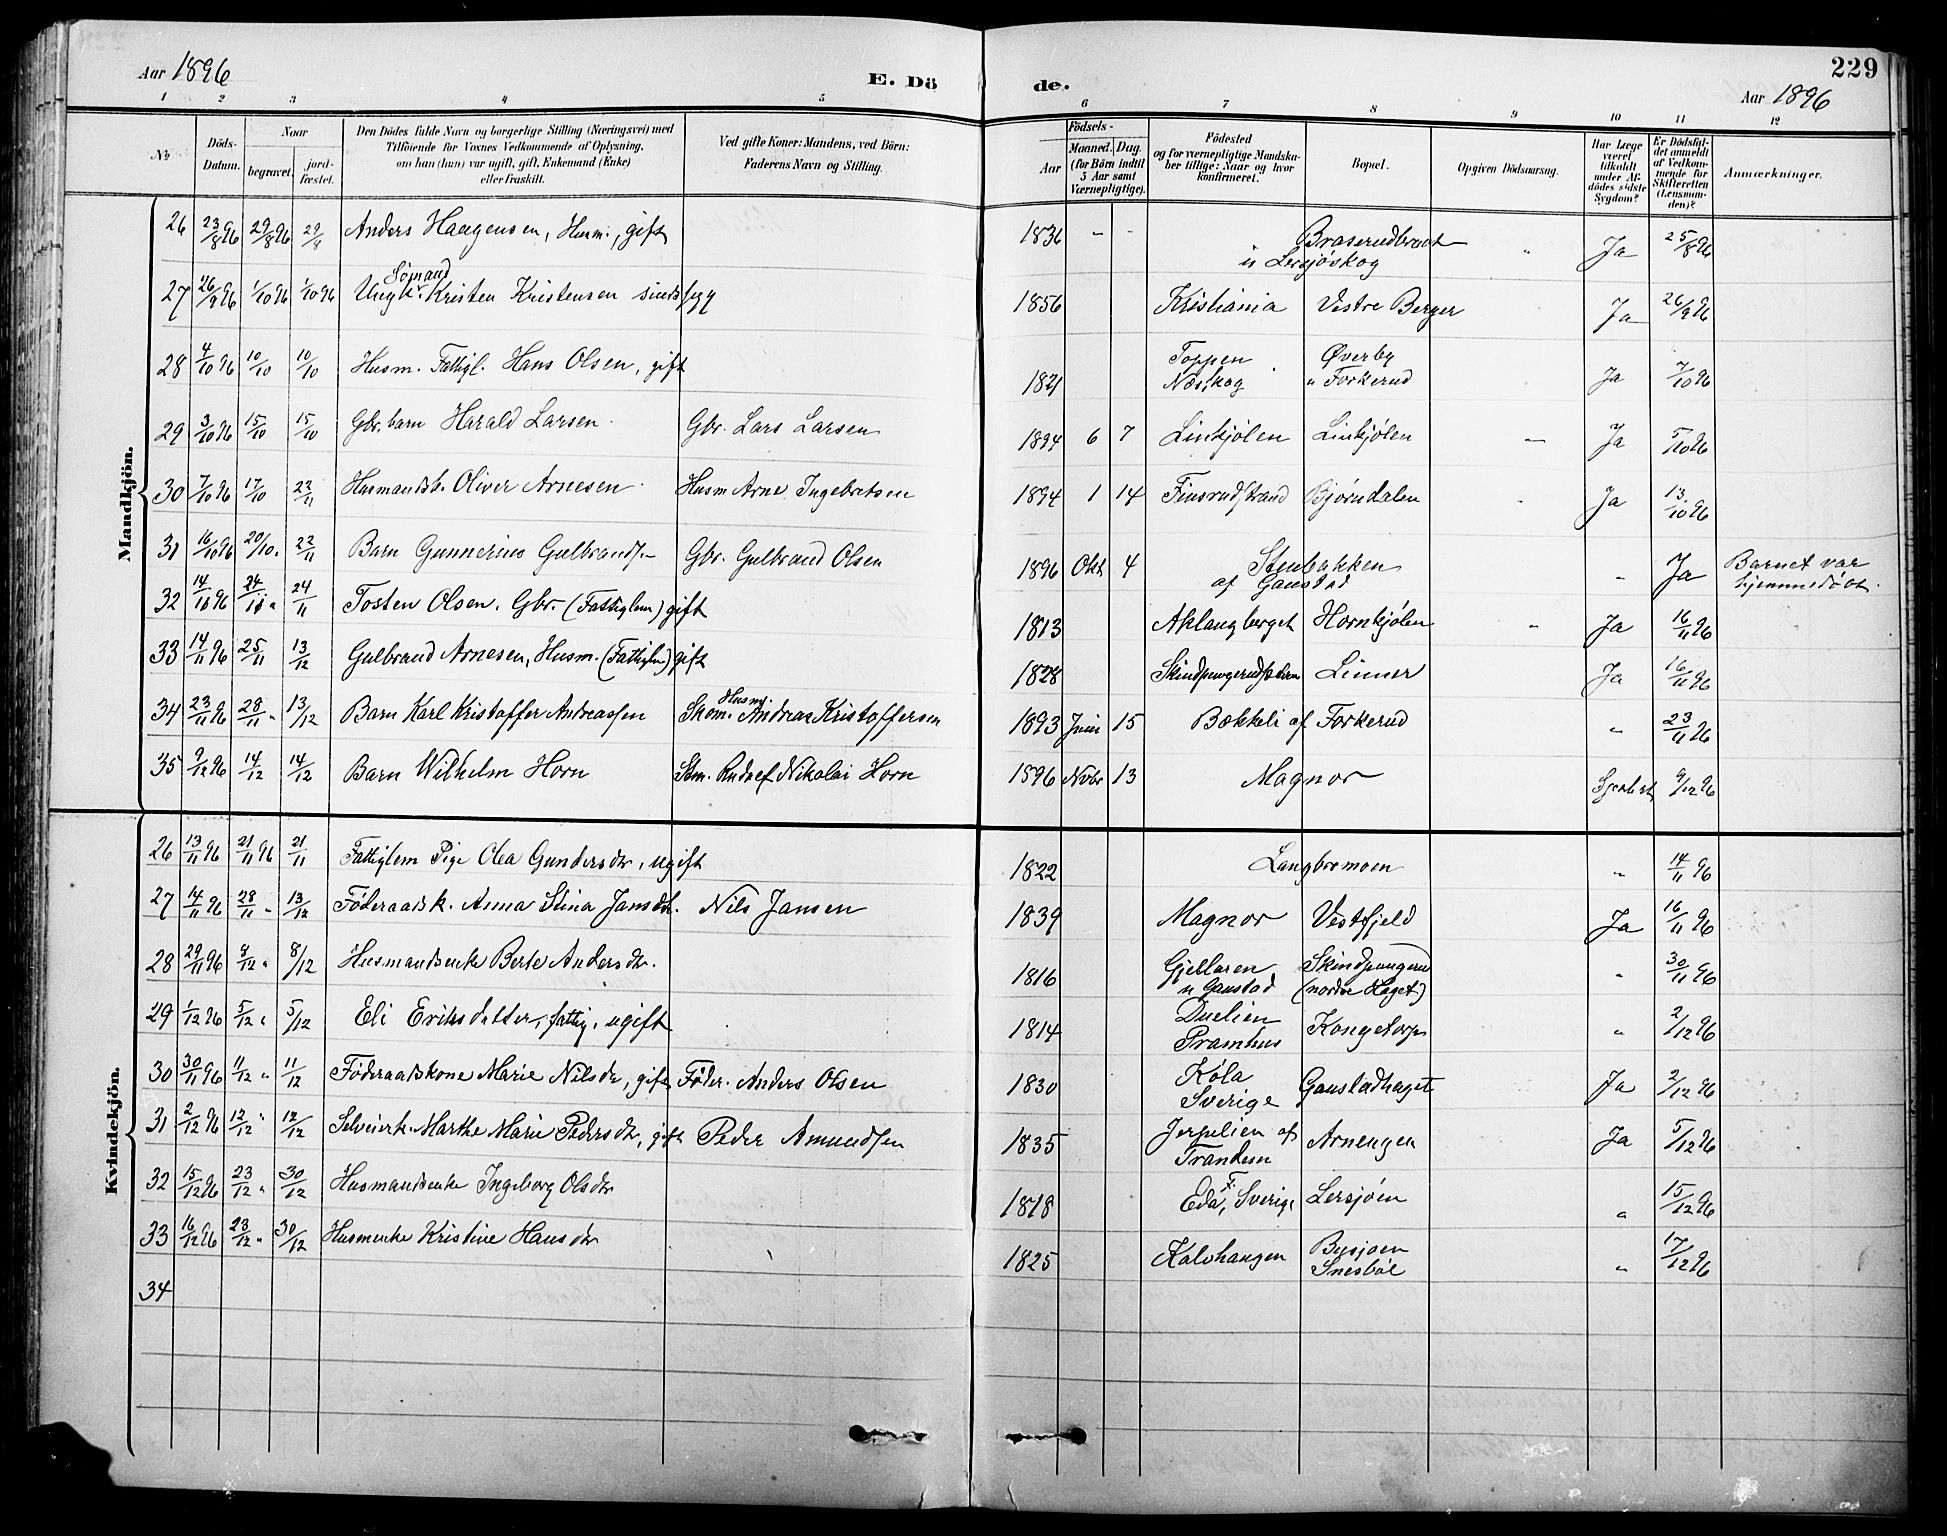 Aar 1896
E. Dö
de.
229
Aar 1896
1 2 3 4 5 6 7 8 9 10 11 12
№
Döds-Datum.
Naar
begravet.
jord-fæstet.
Den Dödes fulde Navn og borgerlige Stilling (Næringsvei) med
Tilföiende for Voxnes Vedkommende af Oplysning,
om han (hun) var ugift, gift, Enkemand (Enke)
eller fraskilt.
Ved gifte Koner: Mandens, ved Börn:
Faderens Navn og Stilling.
Födsels-
Aar
Maaned. Dag.
(for Börn indtil
5 Aar samt
Værnepligtige).
Födested
og for værnepligtige Mandska-
ber tillige: Naar og hvor
konfirmeret.
Bopæl.
Opgiven Dödsaarsag.
Har Læge
været
tilkaldt
under Af-
dödes sidste
Sygdom?
Er Dödsfal-
det anmeldt
af Vedkom-
mende for
Skifteretten
(Lensman-
den)?
Anmærkninger.
Mandkjön.
26 23/8 96 29/8 96 29/8 Anders Haagensen, Husm., gift 1836 - - Braserudbraat u Lersjöskog " Ja 25/8 96
27 26/9 96 1/10 96 1/10 96 Ungk. Sömand Kristen Kristensen sindssyg 1856 Kristiania Vestre Berger Ja 26/9 96
28 4/10 96 10/10 10/10 Husm. Fattigl. Hans Olsen, gift 1821 Toppen Næskog Øverby u Forkerud Ja 7/10 96
29 3/10 96 15/10 15/10 Gbr. barn Harald Larsen Gbr. Lars Larsen 1894 6 7 Linkjölen Linkjölen — Ja 5/10 96
30 7/10 96 17/10 22/11 Husmandsb. Oliver Arnesen Husm Arne Ingebretsen 1894 1 14 Finsrudstrand Björndalen Ja 13/10 96
31 16/10 96 20/10 " 22/11 Barn Gunnerius Gulbrands.- Gbr. Gulbrand Olsen 1896 Okt 4 Stenbakken af Gaustad " Ja Barnet var hjemmedöbt.
32 14/10 96 24/11 " 24/11 Tosten Olsen. Gbr. (Fattiglem) gift 1813 Aklangberget Hornkjölen " Ja 16/11 96
33 14/11 96 25/11 13/12 Gulbrand Arnesen, Husm. (Fattiglem) gift 1828 Linner Ja 16/11 96
34 23/11 96 28/11 " 13/12 Barn Karl Kristoffer Andreassen Skom. Husm. Andreas Kristoffersen 1893 Juni 15 Bækkeli af Forkerud " 23/11 96
35 9/12 96 14/12 14/12 Barn Wilhelm Horn Nikolai Horn 1896 Novbr 13 Magnor 9/12 96
Kvindekjön.
26 13/11 96 21/11 96 21/11 Fattiglem Pige Olea Gundersdtr, ugift 1822 Langbromoen " 14/11 96
27 14/11 96 28/11 " 13/12 Föderaadsk. Anna Stina Jansdtr. Nils Jansen 1839 Magnor Vestfjeld Ja 16/11 96
28 29/11 96 8/12 " 8/12 Husmandsenke Berte Andersdtr. 1816 Gjellaren u Gaustad Skindpungerud (nordre Haget) " 30/11 96
29 1/12 96 5/12 " 5/12 Eli Eriksdatter, fattig, ugift 1814 Duelien Pramhus Kongetorp " 2/12 96
30 30/11 96 11/12 " 11/12 Föderaadskone Marie Nilsdr, gift Föder. Anders Olsen 1830 Köla Sverige Gaustadhaget Ja 2/12 96
31 2/12 96 12/12 " 12/12 Selveierk. Marthe Marie Pedersdtr, gift Peder Amundsen 1835 Jerpelien af Trandem Arnengen Ja 5/12 96
32 15/12 96 23/12 " 30/12 Husmandsenke Ingeborg Olsdtr 1818 Eda, Sverige Lersjöen " 15/12 96
33 16/12 96 23/12 " 30/12 Husmenke Kristine Hansdtr 1825 Kalvhaugen Busjoen Snesböl " 17/12 96
34